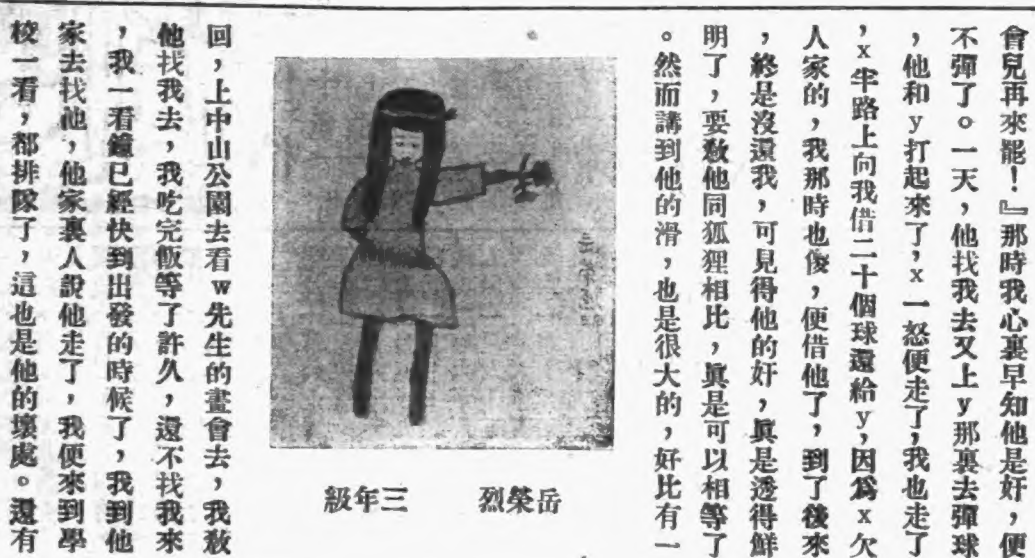 會兒再來罷！』那時我心裏早知他是奸，便
不彈了。一天，他找我去又上y那裏去彈球
，他和y打起來了，x一怒便走了，我也走了
，x半路上向我借二十個球還給y，因爲x欠
人家的，我那時也傻，便借他了，到了後來
，終是沒還我，可見得他的奸，眞是透得鮮
明了，要敎他同狐狸相比，眞是可以相等了
。然而講到他的滑，也是很大的，好比有一
岳榮烈　三年級
回，上中山公園去看w先生的畫會去，我敎
他找我去，我吃完飯等了許久，還不找我來
，我一看鐘已經快到出發的時候了，我到他
家去找他，他家裏人說他走了，我便來到學
校一看，都排隊了，這也是他的壞處。還有